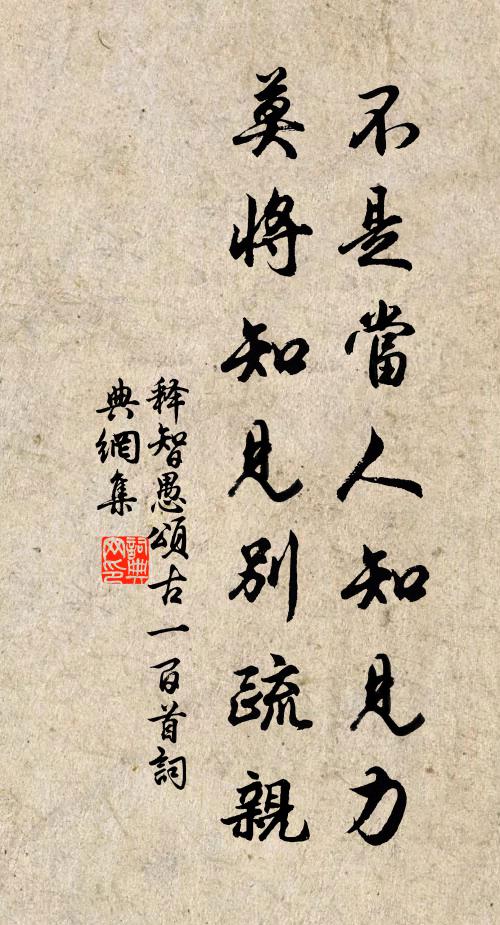 不是當人知見力
莫將知見別疏親
释智愚頌古一百首詞
典網集
詞典
网印